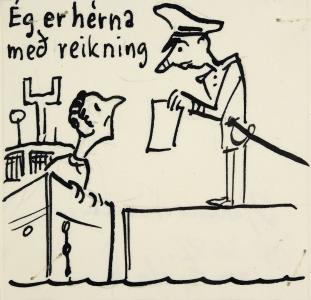 Ég er hérna
með reikning